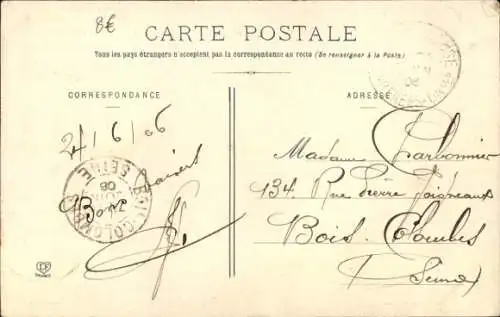 8€
CARTE POSTALE
Tous les pays étrangers n'acceptent pas la correspondance au recto (Se renseigner à la Poste)
CORRESPONDANCE
ADRESSE
21/6/06
Bons baisers
BOIS-COLOMBES
SEINE
06
Madame Charbonnier
134. Rue Pierre Joigneaux
Bois. Colombes
Seine